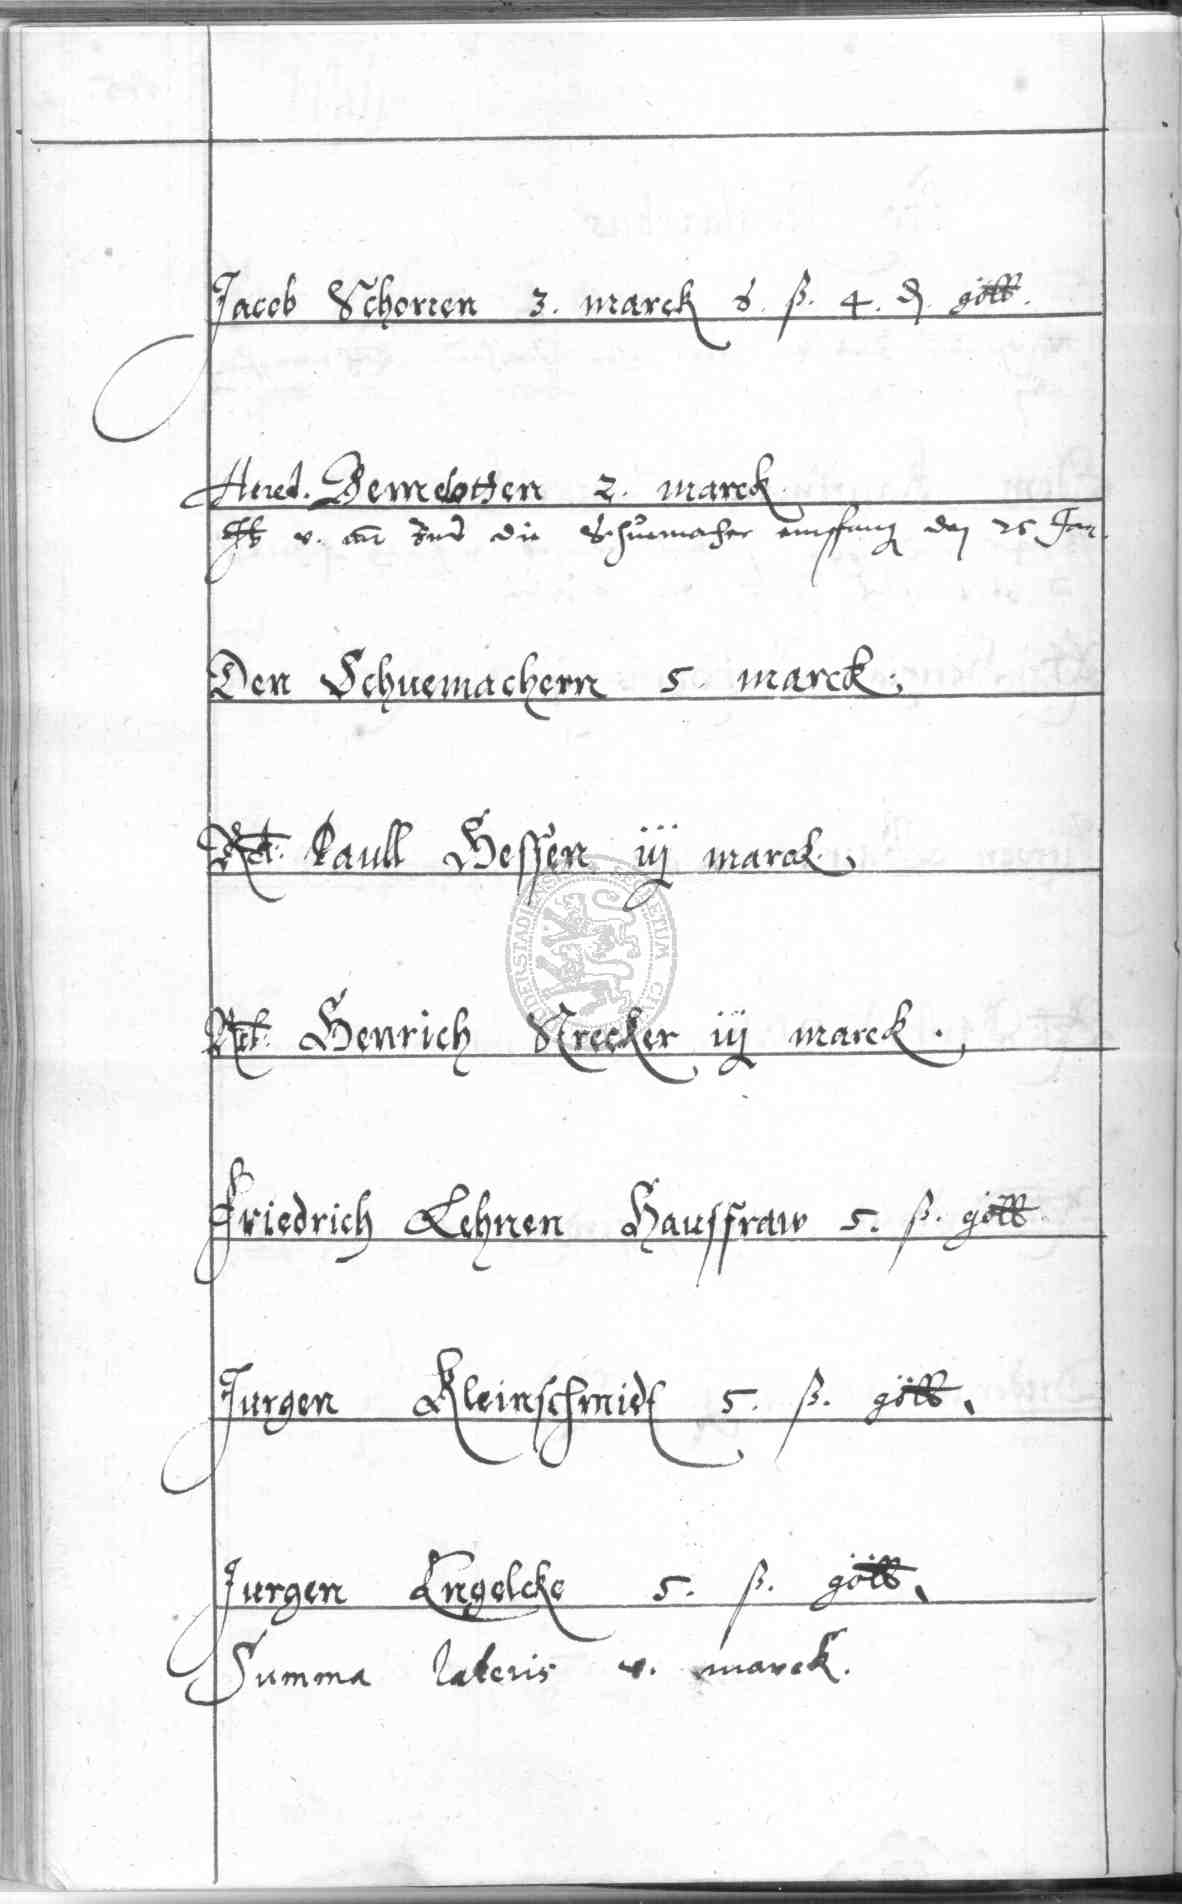 Jacob Schorren 3. marck 8. ß. 4. d. gött.
Hered. Bemelotten 2. marck.
v. die Schuemacher empfang den 25 Jan.
Den Schuemachern 5 marck.
Rel. Paull Hessen iij marck.
Rel. Henrich Strecker iij marck.
Friedrich Lehnen Hausfraw 5. ß. gött.
Jurgen Kleinschmidt 5. ß. gött.
Jurgen Engelcke 5. ß. gött.
Summa lateris v. marck.